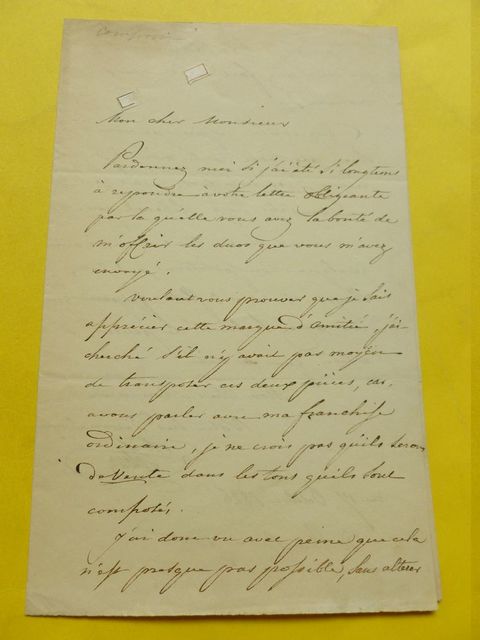 Mon cher Monsieur
Pardonnez moi si j'ai été si longtems
à repondre à votre lettre obligeante
par la quelle vous avez la bonté de
m'offrir les duos que vous m'avez
envoyé.
Voulant vous prouver que je sais
apprécier cette marque d'amitié, j'ai
cherché s'il n'y avait pas moyen
de transposter ces deux pièces, car,
à vous parler avec ma franchise
ordinaire, je ne crois pas qu'ils seront
de Vente dans les tons qu'ils sont
composés.
j'ai donc vu avec peine que cela
n'est presque pas possible, sans alterer